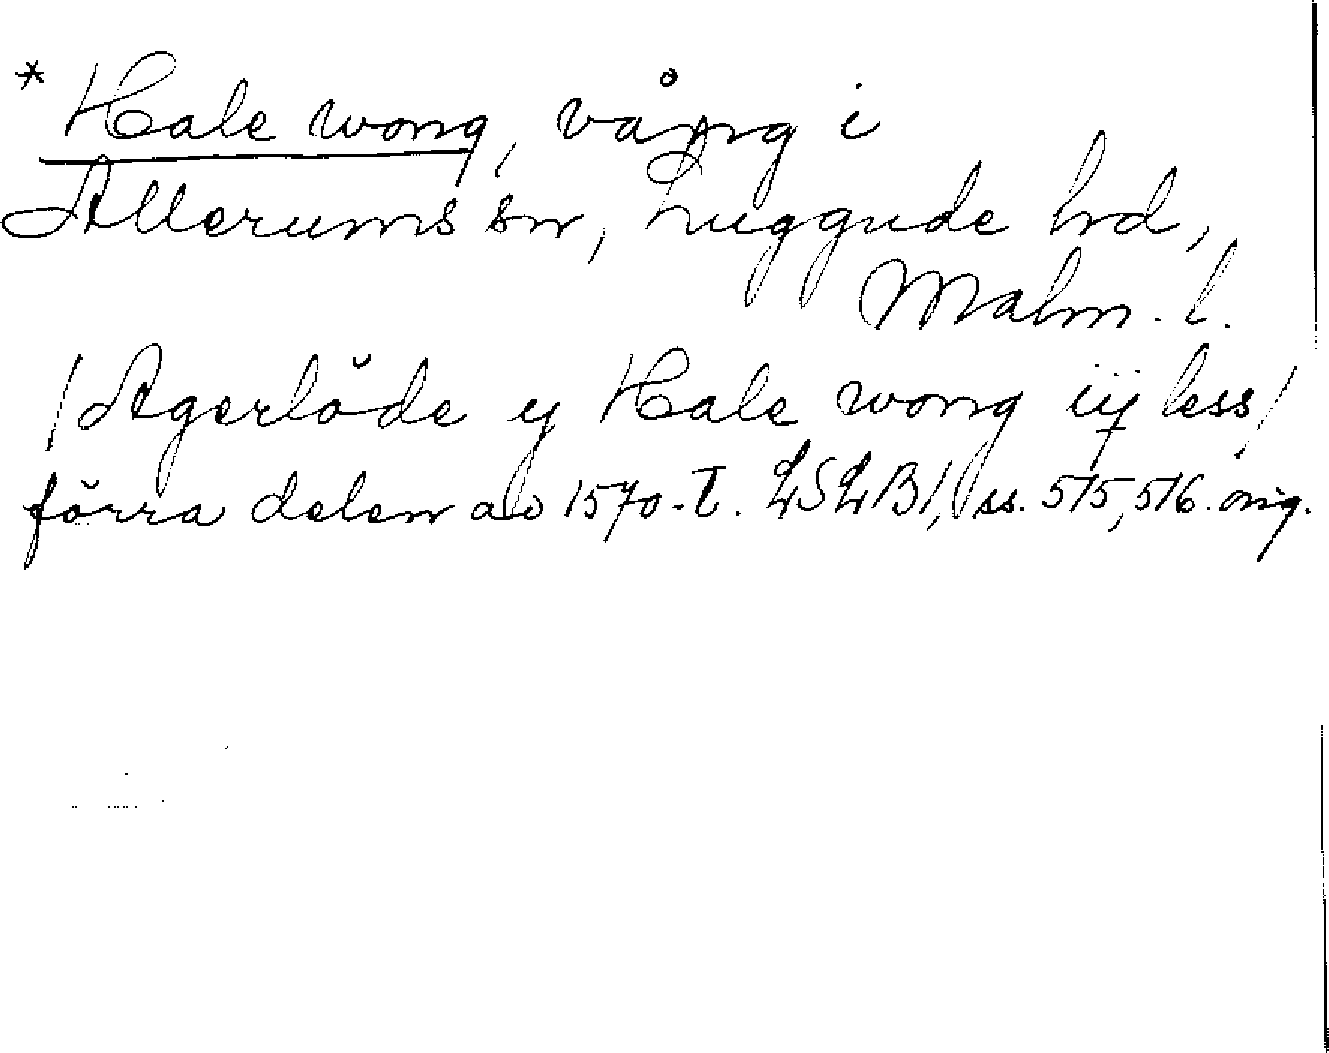 * Hale wong, vång i
Allerums sn, Luggude hd,
Malm. l.
/Agerløde y Hale wong iij less/
förra delen av 1570-t. LSLB1, ss. 515, 516. orig.